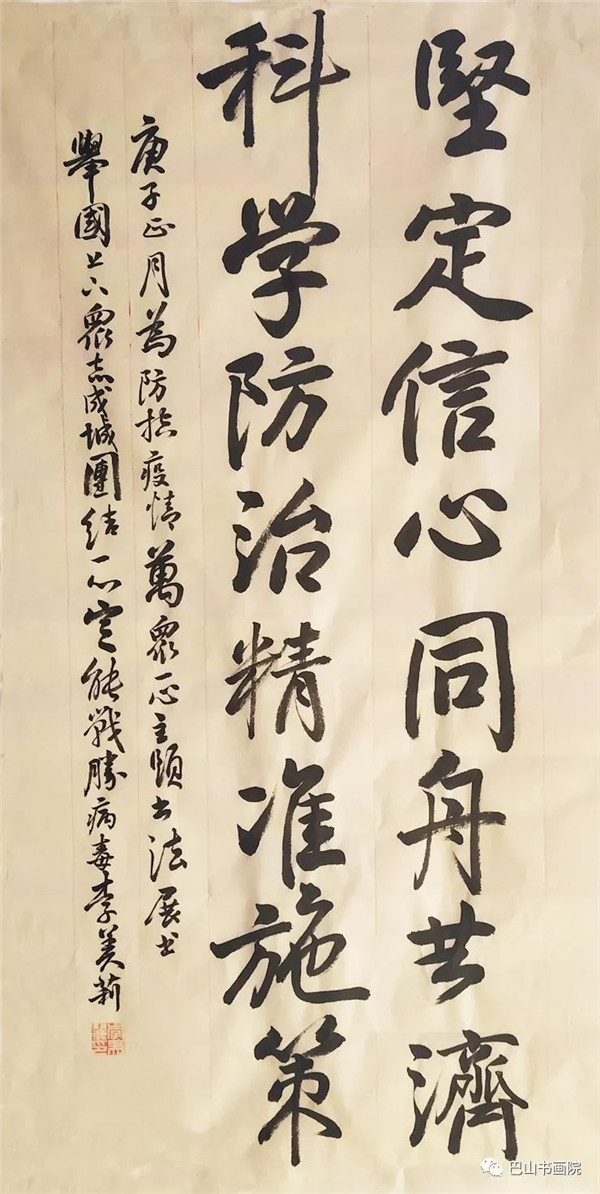 堅定信心同舟共濟
科学防治精准施策
庚子正月為防控疫情萬眾一心主題书法展书
舉國上下眾志成城團結一心定能戰勝病毒李美莉
巴山书画院